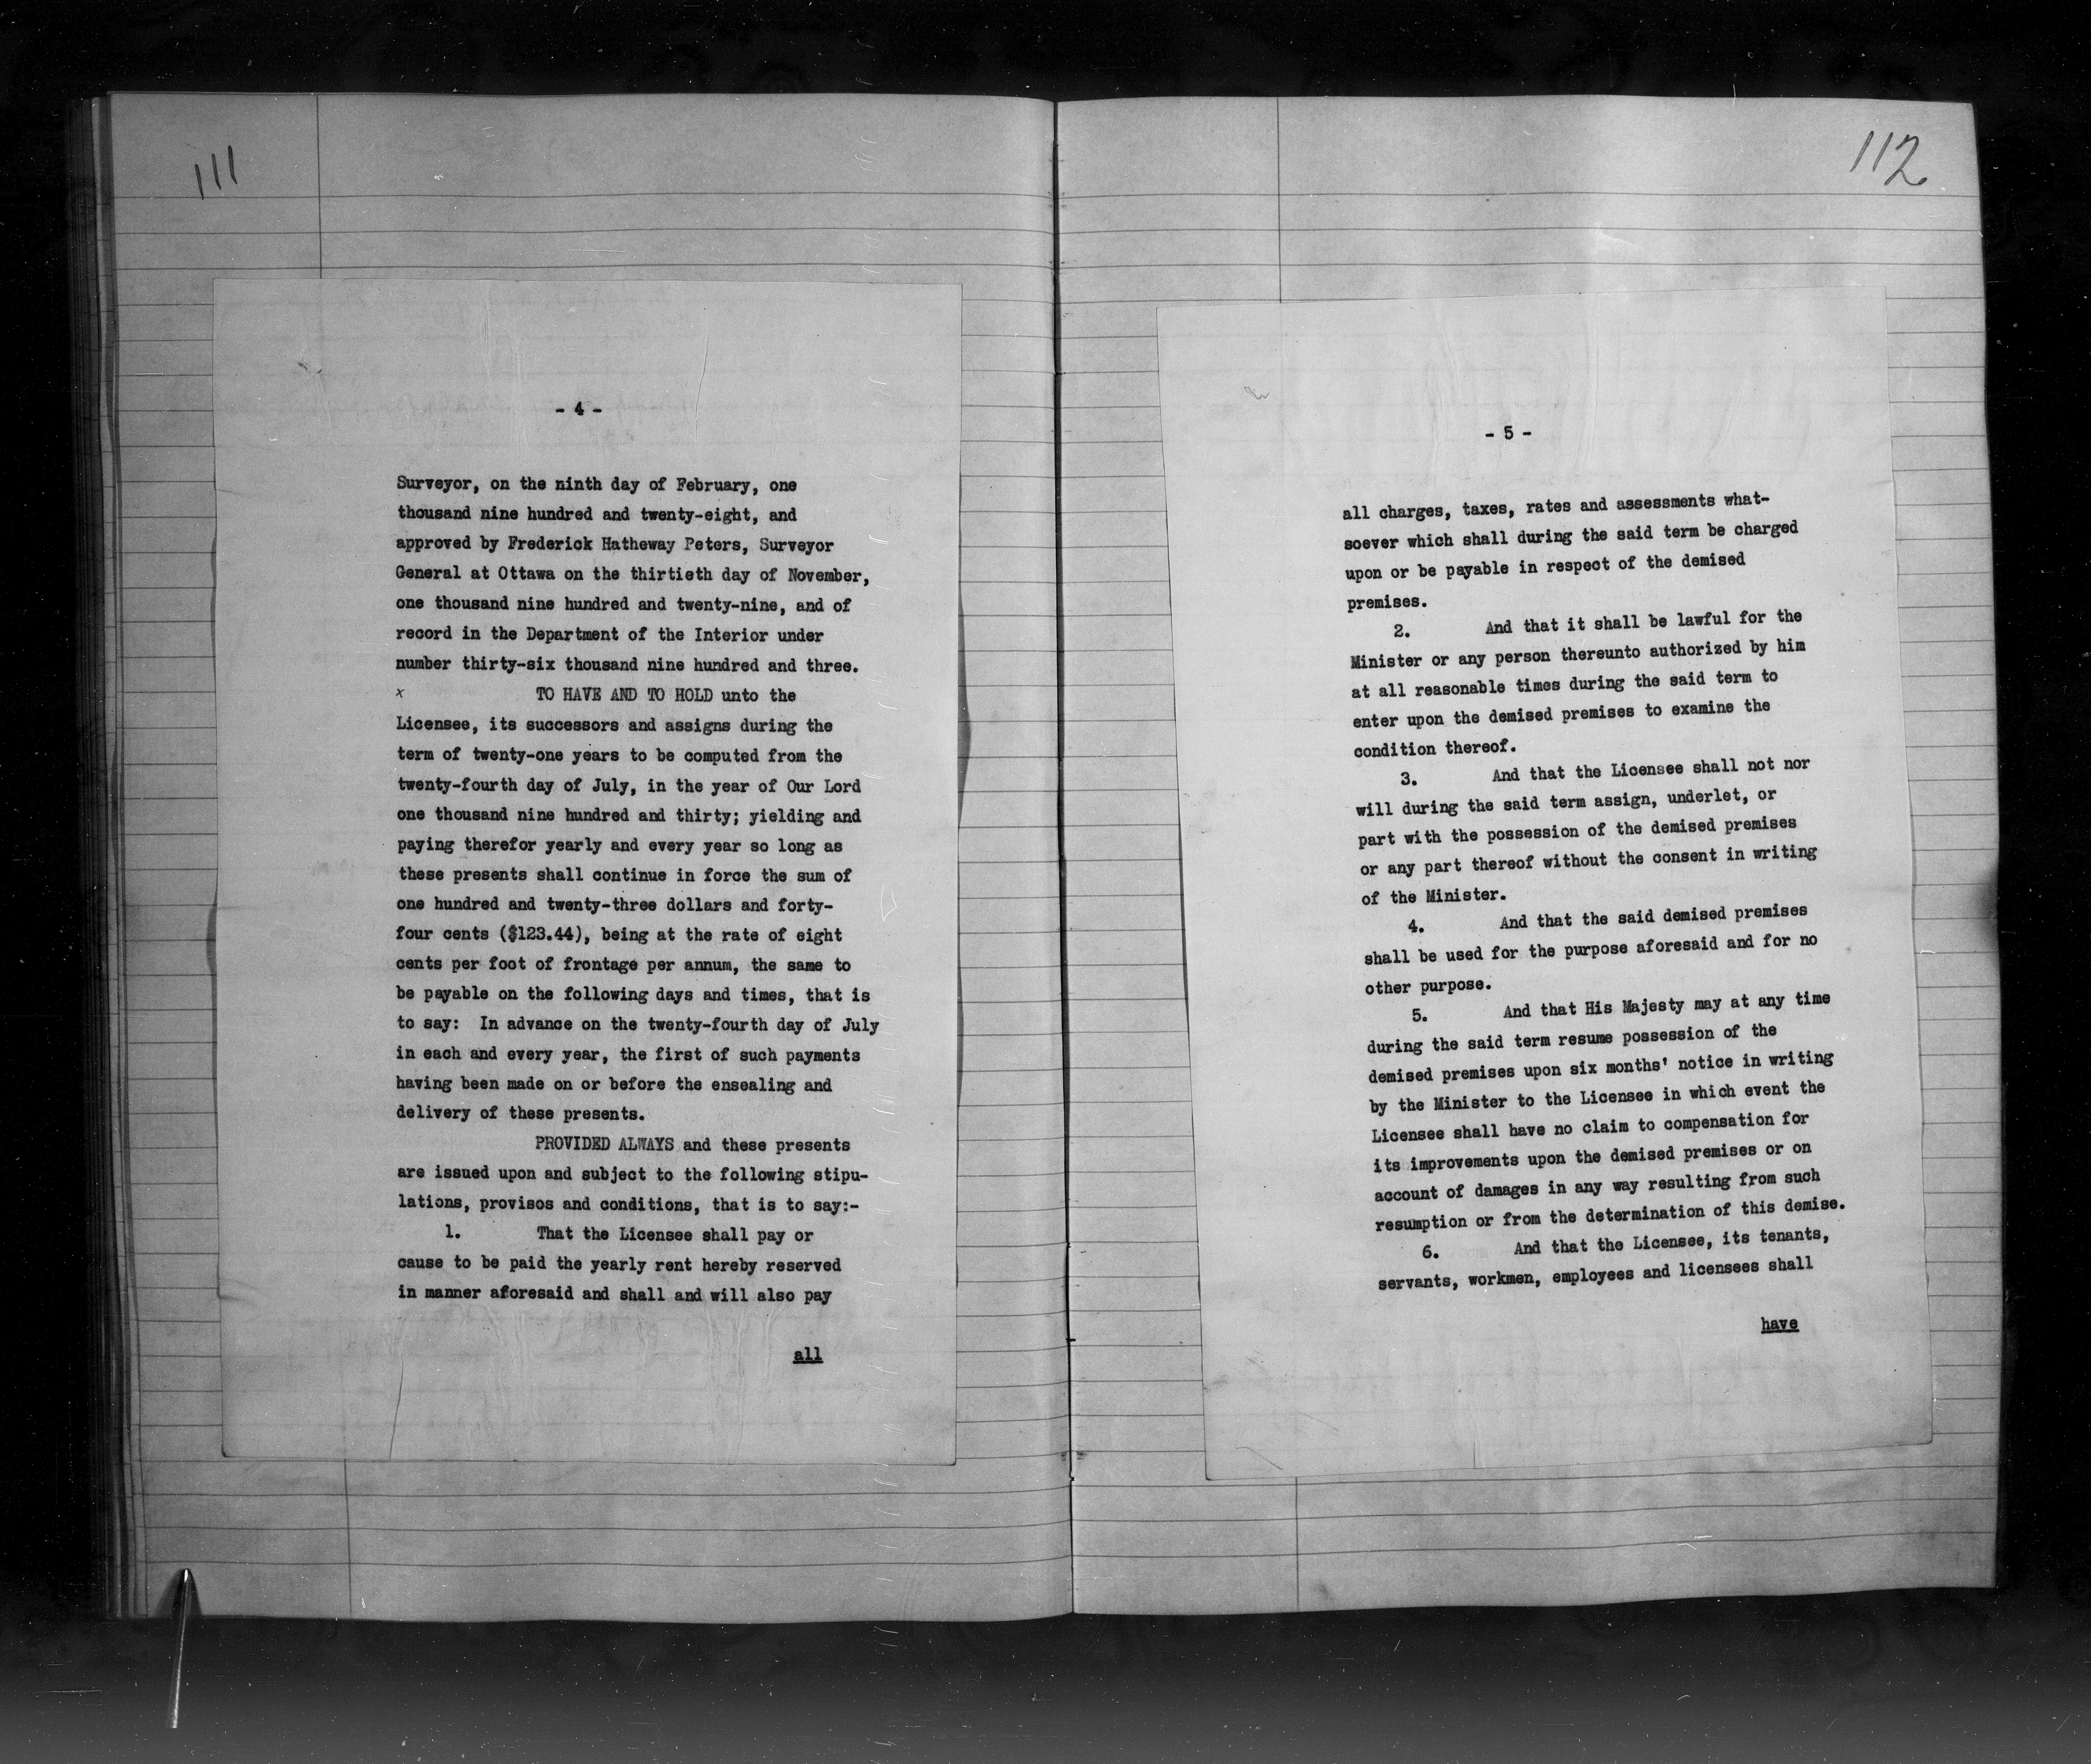 111
- 4 -
Surveyor, on the ninth day of February, one
thousand nine hundred and twenty-eight, and
approved by Frederick Hatheway Peters, Surveyor
General at Ottawa on the thirtieth day of November,
one thousand nine hundred and twenty-nine, and of
record in the Department of the Interior under
number thirty-six thousand nine hundred and three.
x TO HAVE AND TO HOLD unto the
Licensee, its successors and assigns during the
term of twenty-one years to be computed from the
twenty-fourth day of July, in the year of Our Lord
one thousand nine hundred and thirty; yielding and
paying therefor yearly and every year so long as
these presents shall continue in force the sum of
one hundred and twenty-three dollars and forty-
four cents ($123.44), being at the rate of eight
cents per foot of frontage per annum, the same to
be payable on the following days and times, that is
to say: In advance on the twenty-fourth day of July
in each and every year, the first of such payments
having been made on or before the ensealing and
delivery of these presents.
PROVIDED ALWAYS and these presents
are issued upon and subject to the following stipu-
lations, provisos and conditions, that is to say:-
1. That the Licensee shall pay or
cause to be paid the yearly rent hereby reserved
in manner aforesaid and shall and will also pay
all
112
- 5 -
all charges, taxes, rates and assessments what-
soever which shall during the said term be charged
upon or be payable in respect of the demised
premises.
2. And that it shall be lawful for the
Minister or any person thereunto authorized by him
at all reasonable times during the said term to
enter upon the demised premises to examine the
condition thereof.
3. And that the Licensee shall not nor
will during the said term assign, underlet, or
part with the possession of the demised premises
or any part thereof without the consent in writing
of the Minister.
4. And that the said demised premises
shall be used for the purpose aforesaid and for no
other purpose.
5. And that His Majesty may at any time
during the said term resume possession of the
demised premises upon six months' notice in writing
by the Minister to the Licensee in which event the
Licensee shall have no claim to compensation for
its improvements upon the demised premises or on
account of damages in any way resulting from such
resumption or from the determination of this demise.
6. And that the Licensee, its tenants,
servants, workmen, employees and licensees shall
have